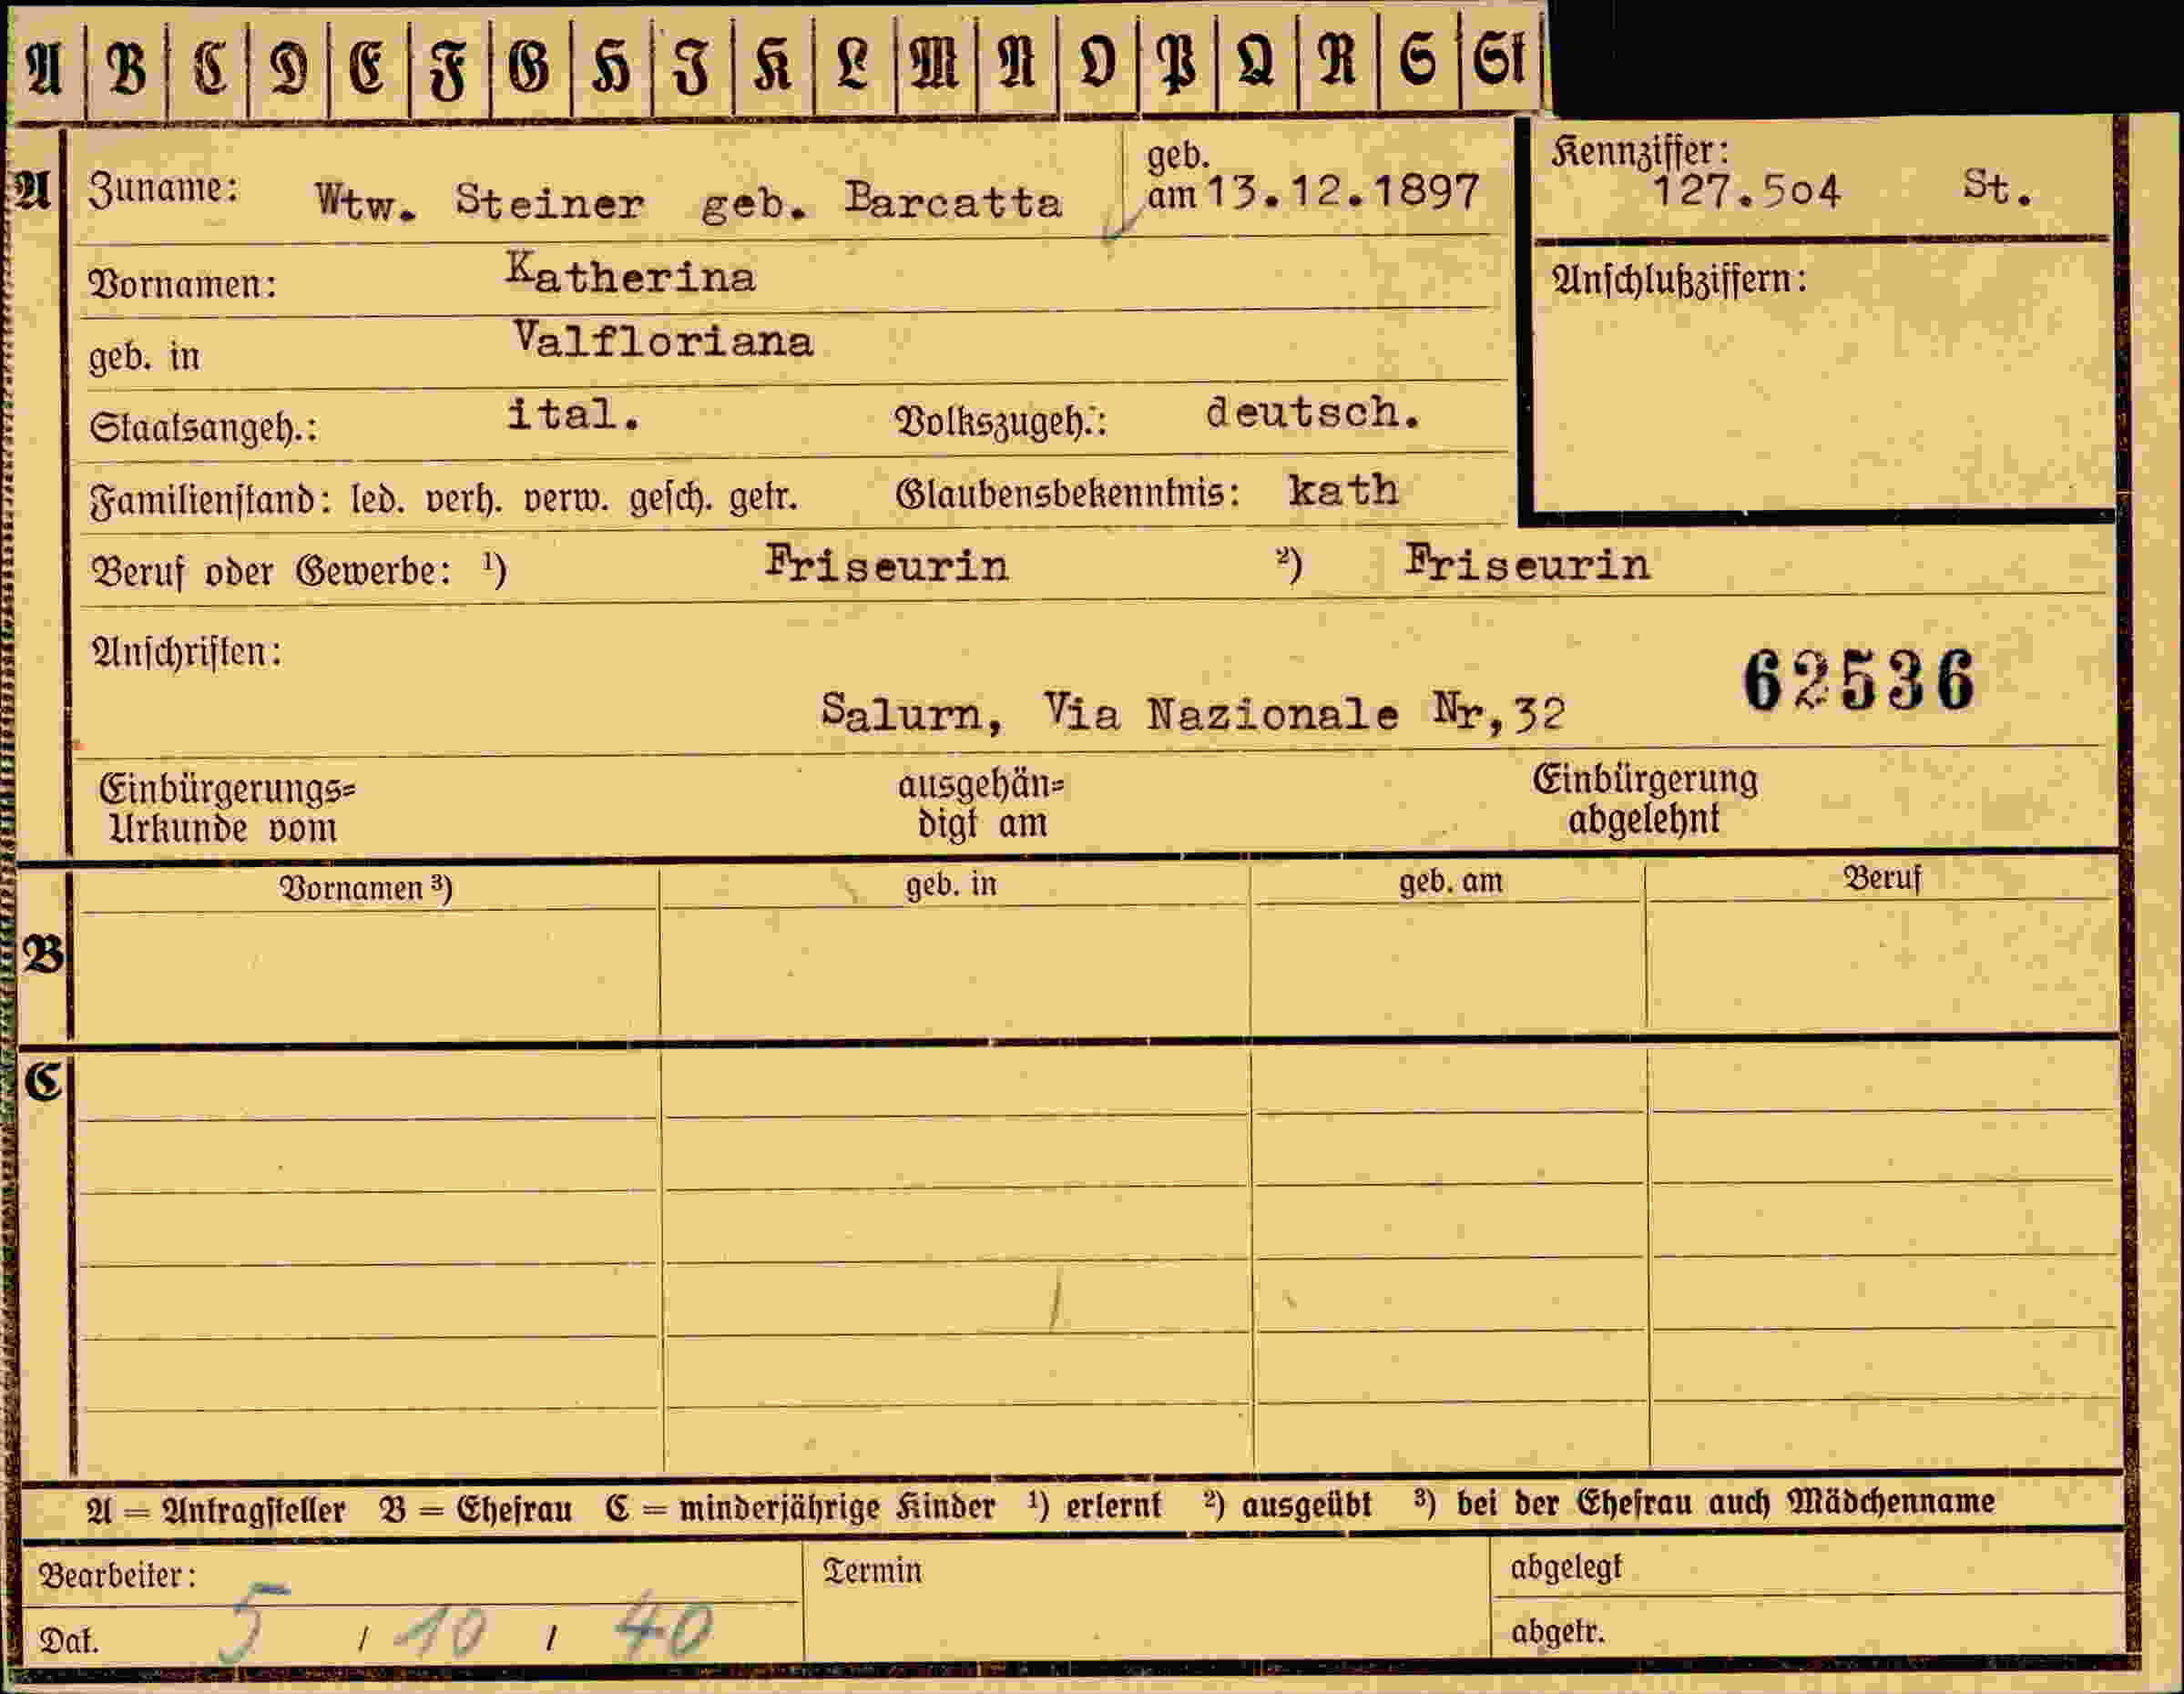 A B C D E F G H J K L M N O P Q R S St
A Zuname: Wtw. Steiner geb. Barcatta geb. am 13.12.1897
Kennziffer: 127.504 St.
Vornamen: Katherina
Anschlußziffern:
geb. in Valfloriana
Staatsangeh.: ital. Volkszugeh.: deutsch.
Familienstand: led. verh. verw. gesch. getr. Glaubensbekenntnis: kath
Beruf oder Gewerbe: ¹) Friseurin ²) Friseurin
Anschriften:
62536
Salurn, Via Nazionale Nr,32
Einbürgerungs= ausgehän= Einbürgerung
Urkunde vom digt am abgelehnt
Vornamen ³) geb. in geb. am Beruf
B
C
A = Antragsteller B = Ehefrau C = minderjährige Kinder ¹) erlernt ²) ausgeübt ³) bei der Ehefrau auch Mädchenname
Bearbeiter: Termin abgelegt
Dat. 5 / 10 / 40 abgetr.